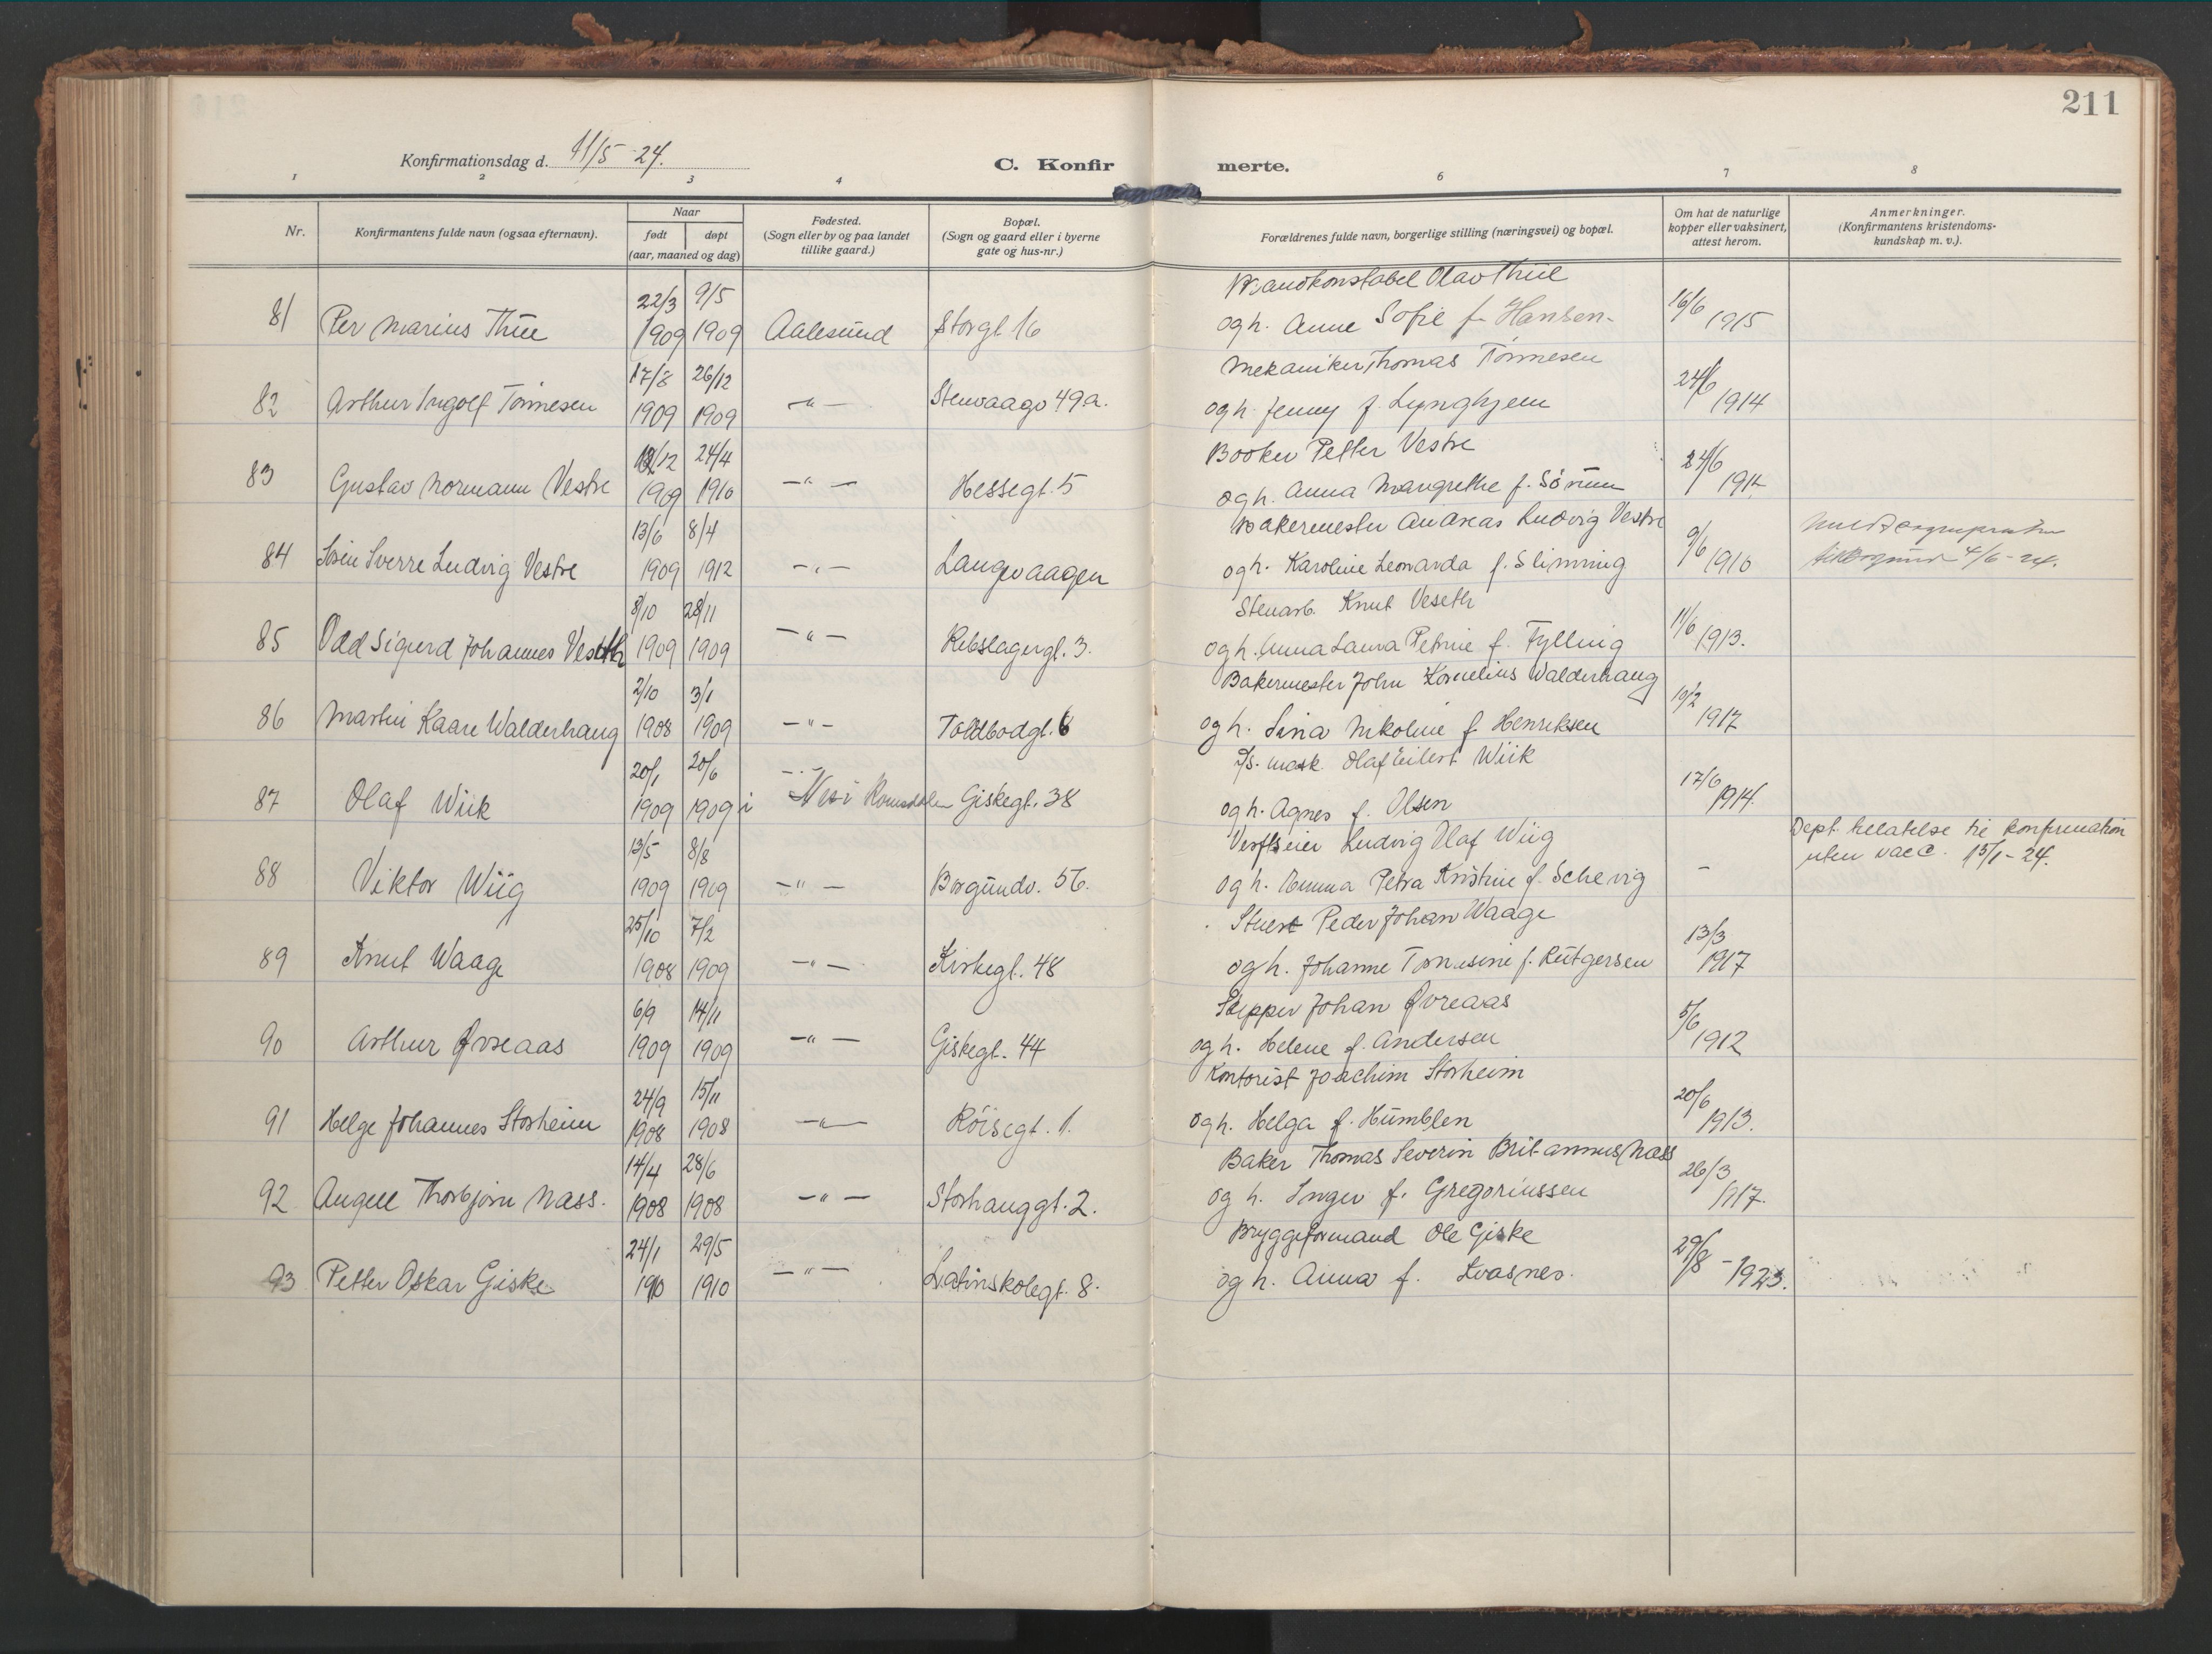 211
Konfirmationsdag d. 11/5 24.
C. Konfirmerte.
1 2 3 4 6 7 8
Nr.
Konfirmantens fulde navn (ogsaa efternavn).
Naar
født døpt
(aar, maaned og dag)
Fødested.
(Sogn eller by og paa landet
tillike gaard.)
Bopæl.
(Sogn og gaard eller i byerne
gate og hus-nr.)
Forældrenes fulde navn, borgerlige stilling (næringsvei) og bopæl.
Om hat de naturlige
kopper eller vaksinert,
attest herom.
Anmerkninger.
(Konfirmantens kristendoms-
kundskap m. v.).
22/3 9/5 Brandkonstabel Olav Thue
81 Per Marius Thue 1909 1909 Aalesund Storgt 16 og h. Anne Sofie f. Hansen. 16/6 1915
17/8 26/12 Mekaniker Thomas Tønnesen
82 Arthur Ingolf Tønnesen 1909 1909 -"- Stenvaagv 49a. og h. Jenny f. Lynghjem 24/6 1914
/12 24/4 Booker Petter Vestre
83 Gustav Normann Vestre 1909 1910 -"- Hessegt. 5 og h. Anna Margrethe f. 24/6 1914
13/6 8/4 Bakermester Andreas Ludvig Vestre
84 Sverre Ludvig Vestre 1909 1912 -"- Langevaagen og h. Karoline Leonarda f. Slimning 9/6 1910 4/6-24.
8/10 28/11 Stenarb. Knut Veseth
85 Odd Sigurd Johannes Veseth 1909 1909 -"- Rebslagergt. 3. og h. Anna Laura Petrine f. Fylling 11/6 1913.
2/10 3/1 Bakermester John Kornelius Walderhaug
86 Martin Kaare Walderhaug 1908 1909 -"- Toldbodgt. 6 og h. Lina Nikoline f. Henriksen 10/2 1917
20/1 20/6 -"- D/S. mask. Olaf Eilert Wiik
87 Olaf Wiik 1909 1909 i Nes i Romsdalen Giskegt. 38 og h. Agnes f. Olsen 17/6 1914.
13/5 8/8 Verftseier Ludvig Olaf Wiig Dept. tillatelse til konfirmation
88 Viktor Wiig 1909 1909 -"- Borgundv. 56. og h. Emma Petra Kristine f. Schevig - uten vacc. 15/1-24.
25/10 7/2 Stuert Peder Johan Waage
89 Knut Waage 1908 1909 -"- Kirkegt. 48 og h. Johanne f. Rütgersen 13/3 1917
6/9 14/11 Skipper Johan Øvreaas
90 Arthur Øvreaas 1909 1909 -"- Giskegt. 44 og h. Helene f. Andersen 5/6 1912
24/9 15/11 Kontorist Joachim Storheim
91 Helge Johannes Storheim 1908 1908 -"- Röisegt. 1. og h. Helga f. Humblen 20/6 1913.
14/4 28/6 Baker Thomas Severin Britannus Nass
92 Angell Thorbjørn Nass. 1908 1908 -"- Storhauggt. 2. og h. Inger f. Gregoriussen 26/3 1917.
24/1 29/5 Bryggeformand Ole Giske
93 Petter Oskar Giske 1910 1910 -"- Latinskolegt. 8. og h. Anna f. Kvasnes. 29/8 - 1923.